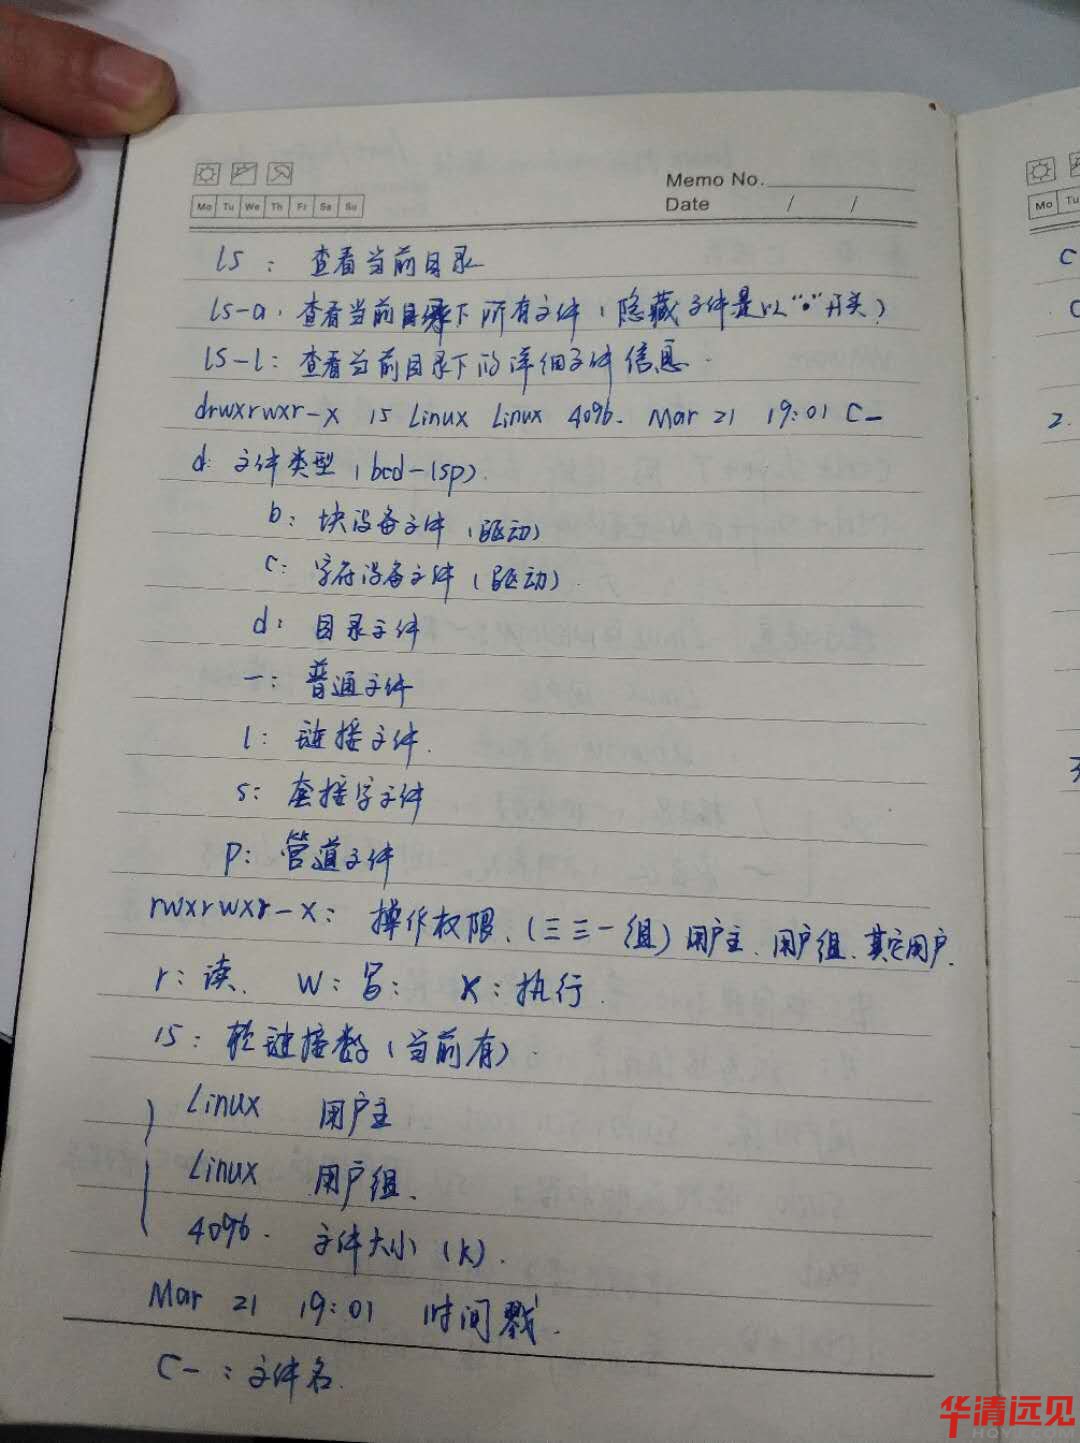 Memo No.
Mo Tu We Th Fr Sa Su
Date / /
ls : 查看当前目录
ls-a: 查看当前目录下所有文件 (隐藏文件是以“.”开头)
ls-l: 查看当前目录下的详细文件信息.
drwxrwxr-x 15 Linux Linux 4096. Mar 21 19:01 C-
d: 文件类型 (bcd-lsp).
b: 块设备文件 (驱动)
c: 字符设备文件 (驱动).
d: 目录文件
-: 普通文件
l: 链接文件.
s: 套接字文件
p: 管道文件
rwxrwxr-x: 操作权限、(三三一组) 用户主、用户组、其它用户.
r: 读、 w: 写: x: 执行.
15: 软链接数 (当前有).
Linux 用户主
Linux 用户组、
4096. 文件大小 (k).
Mar 21 19:01 时间戳.
C- : 文件名.
Mo Tu
C
2.
华清远见
HQYJ.COM